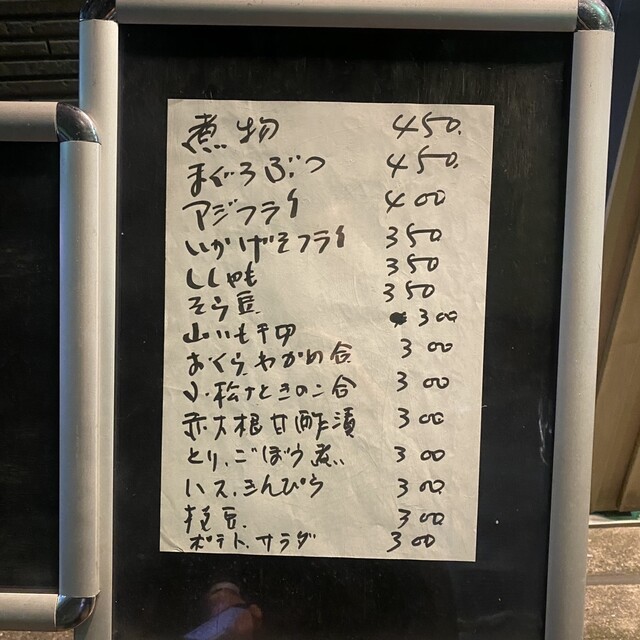 煮物 450.
まぐろぶつ 450.
アジフライ 400
いかげそフライ 350
ししゃも 350
そら豆. 350
山いも千切 300
おくら、わかめ合 300
小松なときのこ合 300
赤大根甘酢漬 300
とり、ごぼう煮 300
ハス、きんぴら 300.
枝豆. 300
ポテト、サラダ 300